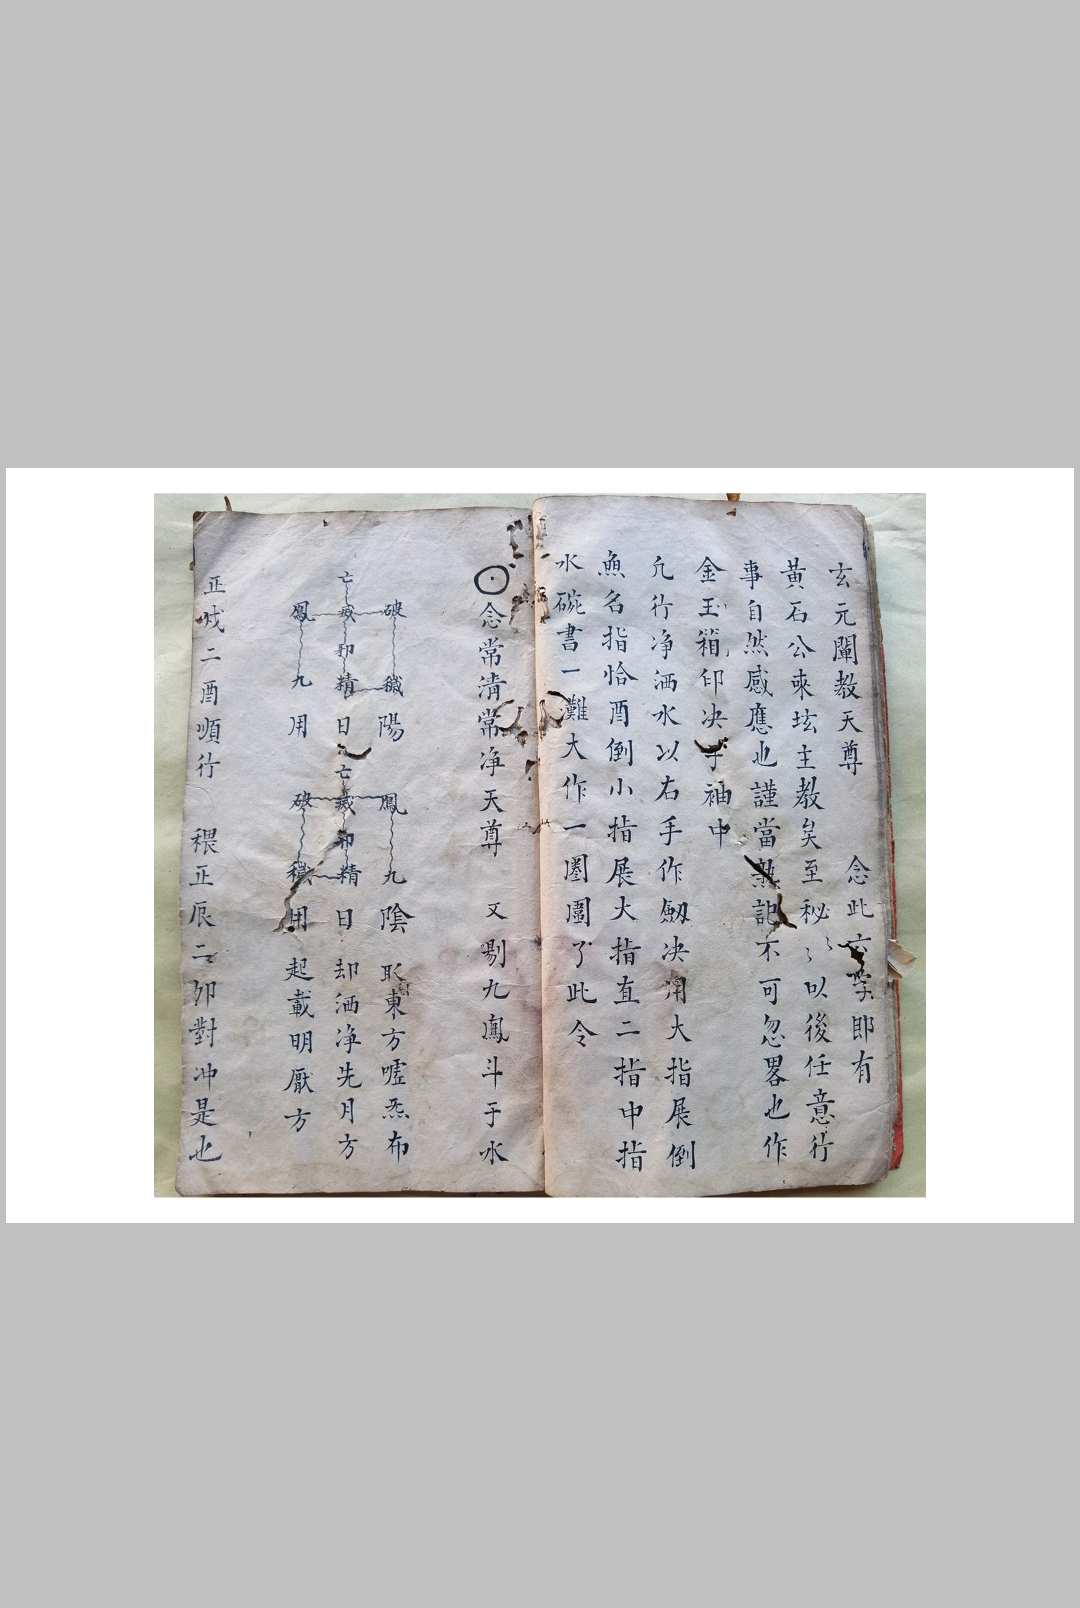 玄元闡教天尊　念此六字即有
黃石公來坛主教矣至秘〻以後任意行
事自然感應也謹當熟記不可忽畧也作
金玉箱印决于袖中
凢行净洒水以右手作劔决用大指展倒
魚名指恰酉倒小指展大指直二指中指
水碗書一灘大作一圏圖了此令
念常清常净天尊　又剔九鳳斗于水
破穢陽　鳳九陰　取東方嘘炁布
亡 和精日 亡 和精日　却洒净先月方
鳳九用　破穢用　起載明厭方
正戌二酉順行　穊正辰二卯對冲是也